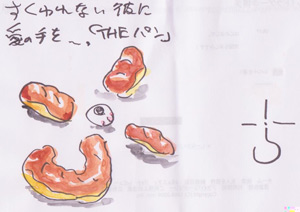 すくわれない彼に
愛の手を〜。「THEパン」